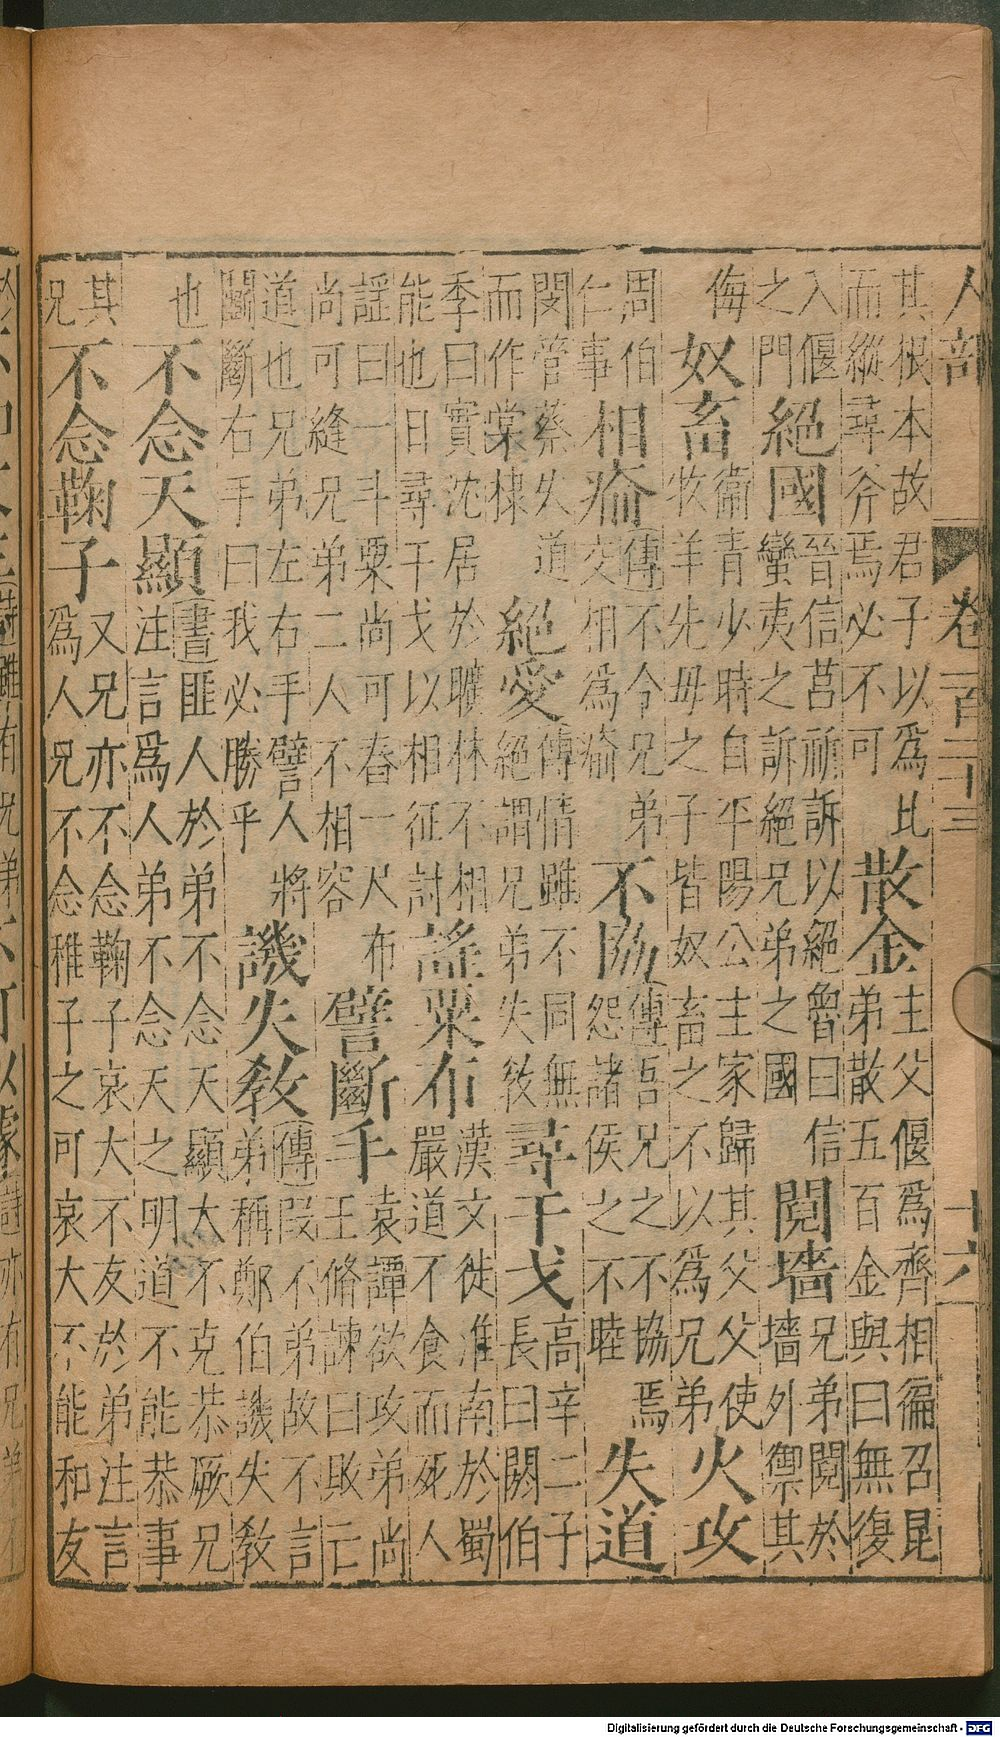 人部 卷一百二十三 十六
其根本故君子以為比而縱尋斧焉必不可散金主父偃為齊相徧召昆弟散五百金與曰無復
入偃之門絕國晉信莒祈訴以絕魯曰信蠻夷之訴絕兄弟之國鬩墻兄弟鬩於墻外禦其
侮奴畜衞青少時自平陽公主家歸其父父使牧羊先毋之子皆奴畜之不以為兄弟火攻
周伯仁事相瘉傳不令兄弟交相為瘉不協傳吾兄之不協焉怨諸侯之不睦失道
閔管蔡失道而作棠棣絕愛傳情雖不同無絕謂兄弟失敎尋干戈高辛二子長曰閼伯
季曰實沈居於曠林不相能也日尋干戈以相征討謠粟布漢文徙淮南於蜀嚴道不食而死人
謡曰一斗粟尚可舂一尺布尚可縫兄弟二人不相容譬斷手袁譚欲攻弟尚王脩諫曰敗亡
道也兄弟左右手譬人將鬬斷右手曰我必勝乎譏失敎傳段不弟故不言弟稱鄭伯譏失敎
也不念天顯書匪人於弟不念天顯大不克恭厥兄注言為人弟不念天之明道不能恭事
其兄不念鞠子又兄亦不念鞠子哀大不友於弟注言為人兄不念稚子之可哀大不能和友
雖有兄弟不可以據詩亦有兄弟不
Digitalisierung gefördert durch die Deutsche Forschungsgemeinschaft - DFG